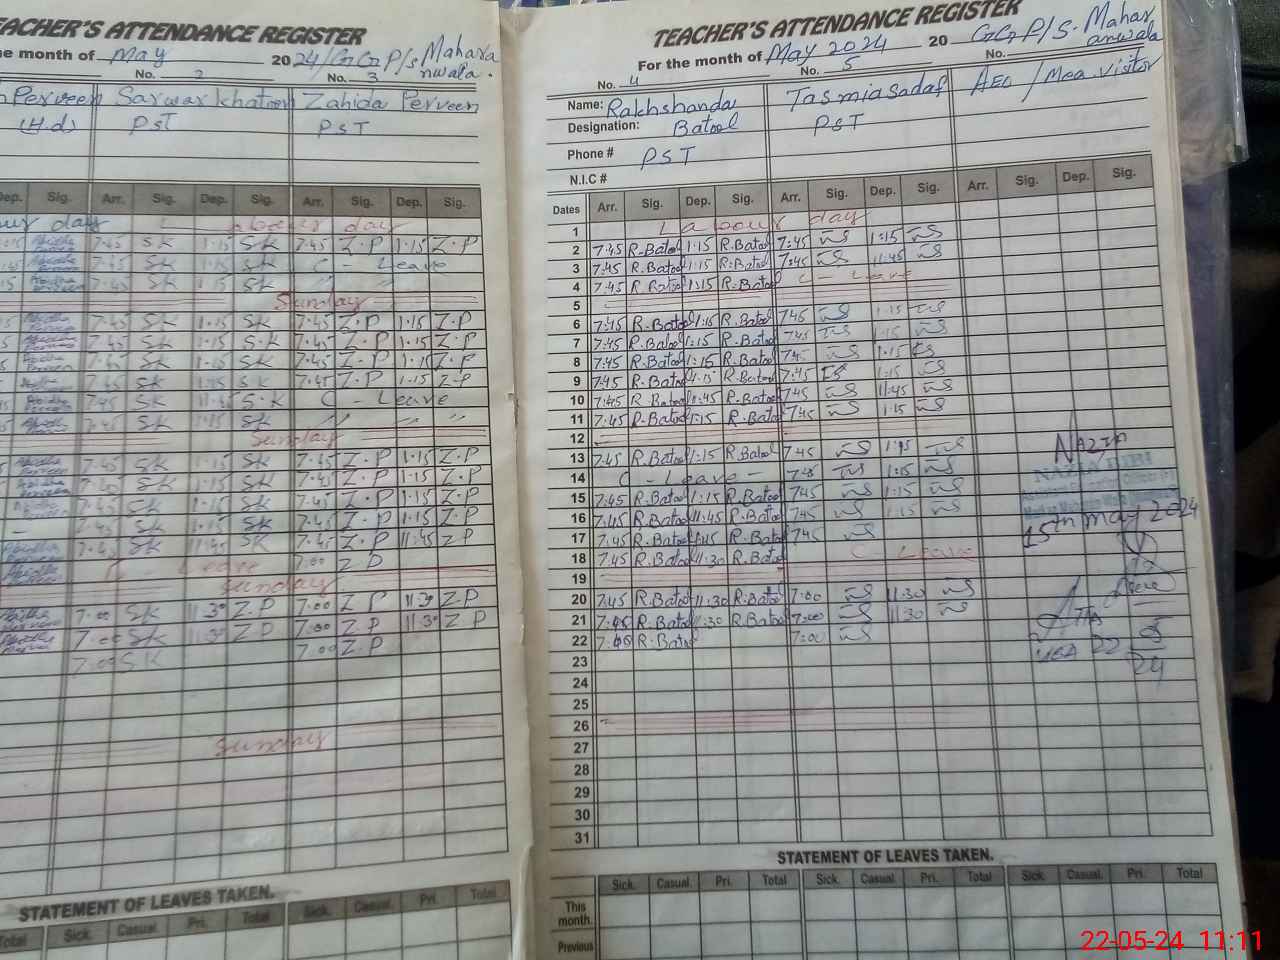 TEACHER'S ATTENDANCE REGISTER
he month of May 2024/GGP/s Maharanwala.
No. 2 No. 3
Perveen Sarwar khatoon Zahida Perveen
(H.d) PST PST
Dep. Sig. Arr. Sig. Dep. Sig. Arr. Sig. Dep. Sig.
our day Labour day
7.45 SK 1.15 S.K 7.45 Z.P 1.15 Z.P
7.45 SK 1.15 SK C - Leave
7.45 SK 1.15 SK " "
Sunday
7.45 SK 1.15 SK 7.45 Z.P 1.15 Z.P
7.45 SK 1.15 S.K 7.45 Z.P 1.15 Z.P
7.45 SK 1.15 SK 7.45 Z.P 1.15 Z.P
7.45 SK 1.15 SK 7.45 Z.P 1.15 Z.P
7.45 SK 11.45 S.K C - Leave
7.45 SK 1.15 SK " " "
Sunday
7.45 SK 1.15 SK 7.45 Z.P 1.15 Z.P
7.45 SK 1.15 SK 7.45 Z.P 1.15 Z.P
7.45 SK 1.15 SK 7.45 Z.P 1.15 Z.P
7.45 SK 1.15 SK 7.45 Z.P 1.15 Z.P
7.45 SK 11.45 SK 7.45 Z.P 11.45 ZP
C - Leave 7.00 Z P
Sunday
7.00 SK 11.30 Z.P 7.00 Z P 11.30 ZP
7.00 SK 11.30 Z P 7.00 Z.P 11.30 Z P
7.00 SK 7.00 Z.P
Sunday
STATEMENT OF LEAVES TAKEN.
Total Sick. Casual. Pri. Total Sick. Casual. Pri. Total
TEACHER'S ATTENDANCE REGISTER
For the month of May 2024 20 GGP/S. Maharanwala
No. 4 No. 5 No.
Name: Rakhshanda Batool Tasmia Sadaf AEO / Mea visitor
Designation: PST PST
Phone #
N.I.C #
Dates Arr. Sig. Dep. Sig. Arr. Sig. Dep. Sig. Arr. Sig. Dep. Sig.
1 Labour day
2 7:45 R.Batool 1:15 R.Batool 7:45 TS 1:15 TS
3 7:45 R.Batool 1:15 R.Batool 7:45 TS 11:45 TS
4 7:45 R.Batool 1:15 R.Batool C - Leave
5
6 7:45 R.Batool 1:15 R.Batool 7:45 TS 1:15 TS
7 7:45 R.Batool 1:15 R.Batool 7:45 TS 1:15 TS
8 7:45 R.Batool 1:15 R.Batool 7:45 TS 1:15 TS
9 7:45 R.Batool 1:15 R.Batool 7:45 TS 1:15 TS
10 7:45 R.Batool 11:45 R.Batool 7:45 TS 11:45 TS
11 7:45 R.Batool 1:15 R.Batool 7:45 TS 1:15 TS
12
13 7:45 R.Batool 1:15 R.Batool 7:45 TS 1:15 TS
14 C - Leave - 7:45 TS 1:15 TS
15 7:45 R.Batool 1:15 R.Batool 7:45 TS 1:15 TS
16 7:45 R.Batool 11:45 R.Batool 7:45 TS 1:15 TS
17 7:45 R.Batool 11:45 R.Batool 7:45 TS
18 7:45 R.Batool 11:30 R.Batool C - Leave
19
20 7:45 R.Batool 11:30 R.Batool 7:00 TS 11:30 TS
21 7:45 R.Batool 11:30 R.Batool 7:00 TS 11:30 TS
22 7:45 R.Batool 7:00 TS
23
24
25
26
27
28
29
30
31
NAZIA
NAZIA BIBI
15th may 2024
22
5
24
STATEMENT OF LEAVES TAKEN.
Sick. Casual. Pri. Total Sick. Casual. Pri. Total Sick. Casual. Pri. Total
This month.
Previous
22-05-24 11:11